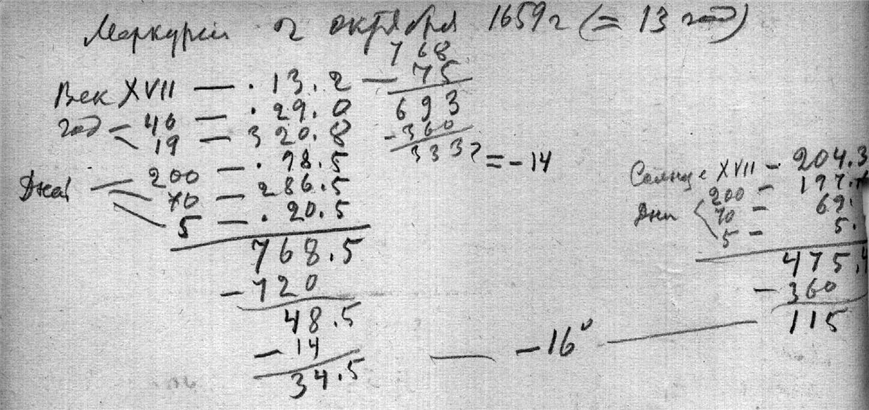 Меркурий 2 октября 1659 г (= 13 год)
768
Век XVII — . 13.2 — 75
год — 40 — . 29.0 693
19 — 320.8 - 360
333? = -14
Дни — 200 — . 98.5
70 — 286.5
5 — . 20.5
768.5
- 720
48.5
- 14 — -16°
34.5
Солнце XVII — 204.3
200 — 197.
Дни 70 — 69.
5 — 5.
475.4
- 360
115